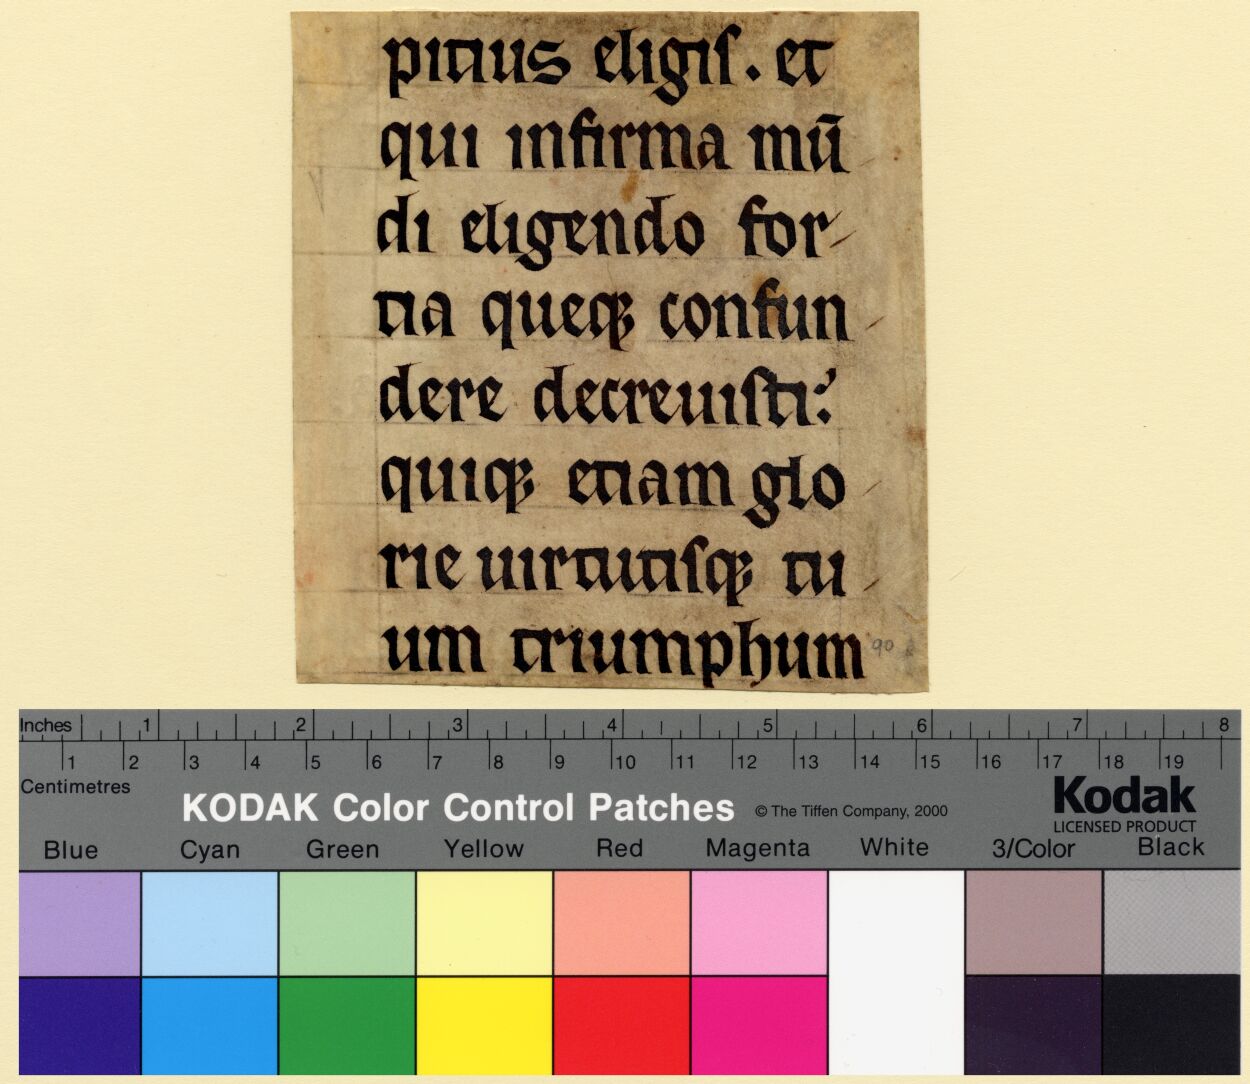 pitius eligis. et
qui infirma mū
di eligendo for-
tia queqꝫ confun
dere decreuisti:
quiqꝫ etiam glo
rie uirtutisqꝫ tu
um triumphum
90
Inches 1 2 3 4 5 6 7 8
1 2 3 4 5 6 7 8 9 10 11 12 13 14 15 16 17 18 19
Centimetres
KODAK Color Control Patches © The Tiffen Company, 2000
Kodak
LICENSED PRODUCT
Blue Cyan Green Yellow Red Magenta White 3/Color Black